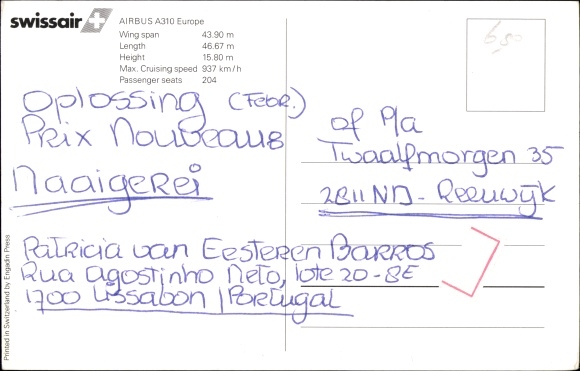 swissair
AIRBUS A310 Europe
Wing span 43.90 m
Length 46.67 m
Height 15.80 m
Max. Cruising speed 937 km/h
Passenger seats 204
6,50
Oplossing (Febr.)
Prix Nouveaus
Naaigerei
of P/a
Twaalfmorgen 35
2811 ND - Reeuwijk
Patricia van Eesteren Barros
Rua Agostinho Neto, lote 20 - 8E
1700 Lissabon / Portugal
Printed in Switzerland by Engadin Press